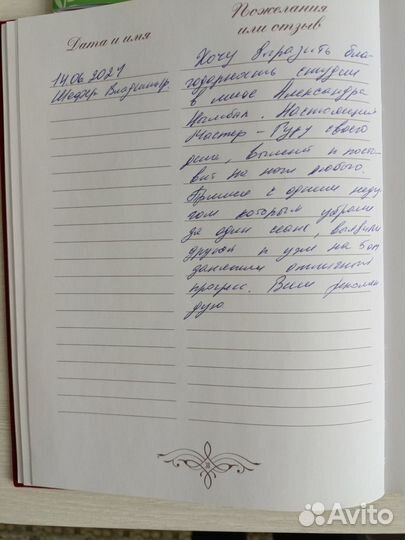 Дата и имя
Пожелания
или отзыв
14.06.2021
Владимир
Хочу выразить бла-
годарность студии
в лице Александра
Настоящий
Мастер - Гуру своего
дела, вылечит и поста
вит на ноги любого.
Пришел с одним неду
гом который убрали
за один сеанс, выявили
другой и уже на 5ом
отличный
прогресс. Всем рекомен
дую.
Avito